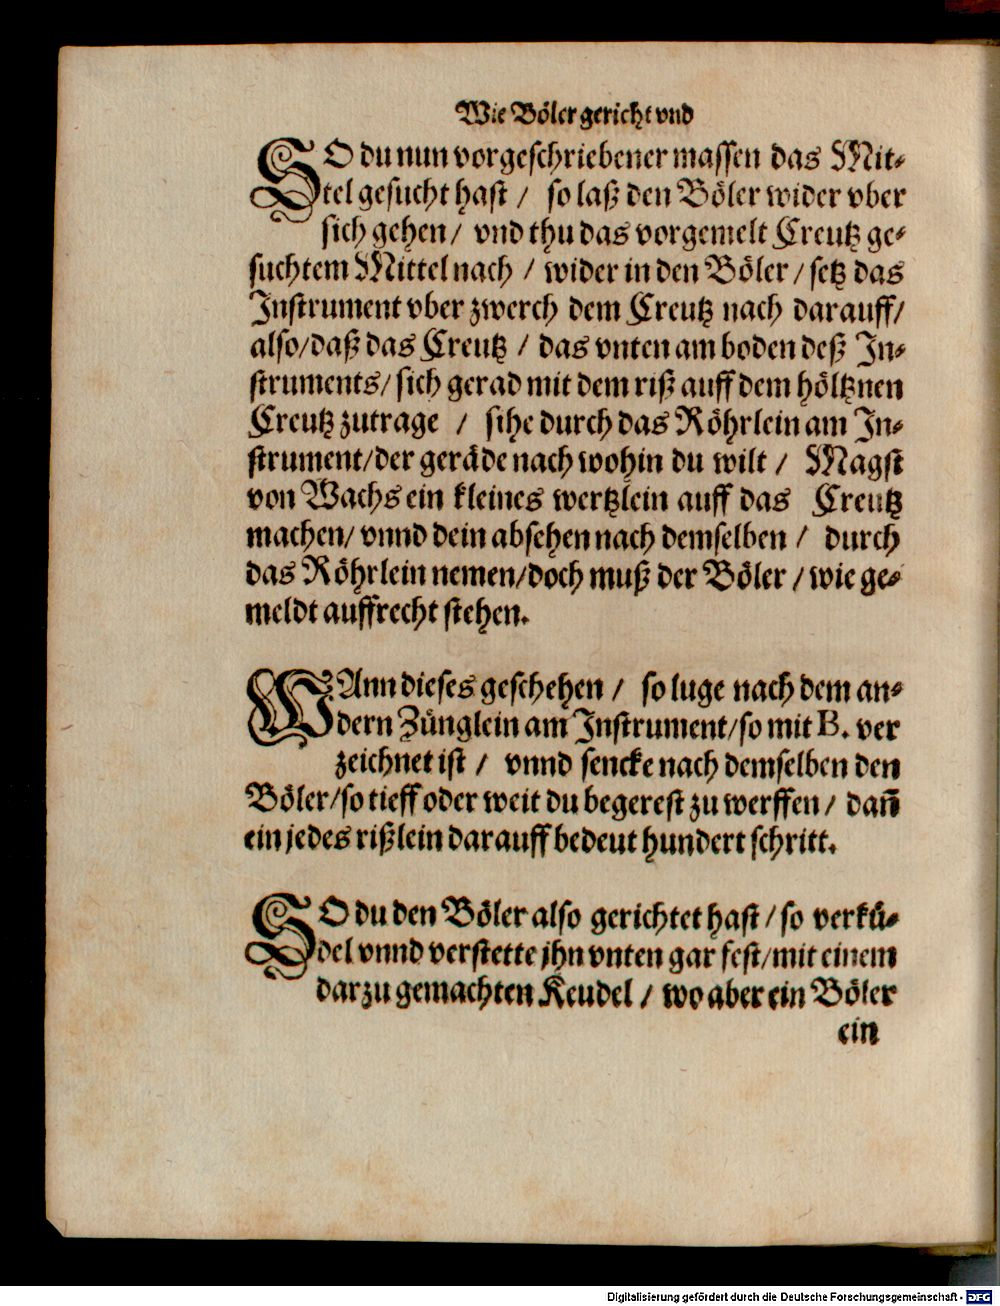 Wie Böler gericht vnd
SO du nun vorgeschriebener massen das Mit⸗
tel gesucht hast / so laß den Böler wider vber
sich gehen / vnd thu das vorgemelt Creutz ge⸗
suchtem Mittel nach / wider in den Böler / setz das
Instrument vber zwerch dem Creutz nach darauff /
also / daß das Creutz / das vnten am boden deß In⸗
struments / sich gerad mit dem riß auff dem höltznen
Creutz zutrage / sihe durch das Röhrlein am In⸗
strument / der geräde nach wohin du wilt / Magst
von Wachs ein kleines wertzlein auff das Creutz
machen / vnnd dein absehen nach demselben / durch
das Röhrlein nemen / doch muß der Böler / wie ge⸗
meldt auffrecht stehen.
WAnn dieses geschehen / so luge nach dem an⸗
dern Zünglein am Instrument / so mit B. ver
zeichnet ist / vnnd sencke nach demselben den
Böler / so tieff oder weit du begerest zu werffen / dañ
ein jedes rißlein darauff bedeut hundert schritt.
SO du den Böler also gerichtet hast / so verkü⸗
del vnnd verstette jhn vnten gar fest / mit einem
darzu gemachten Keudel / wo aber ein Böler
ein
Digitalisierung gefördert durch die Deutsche Forschungsgemeinschaft - DFG